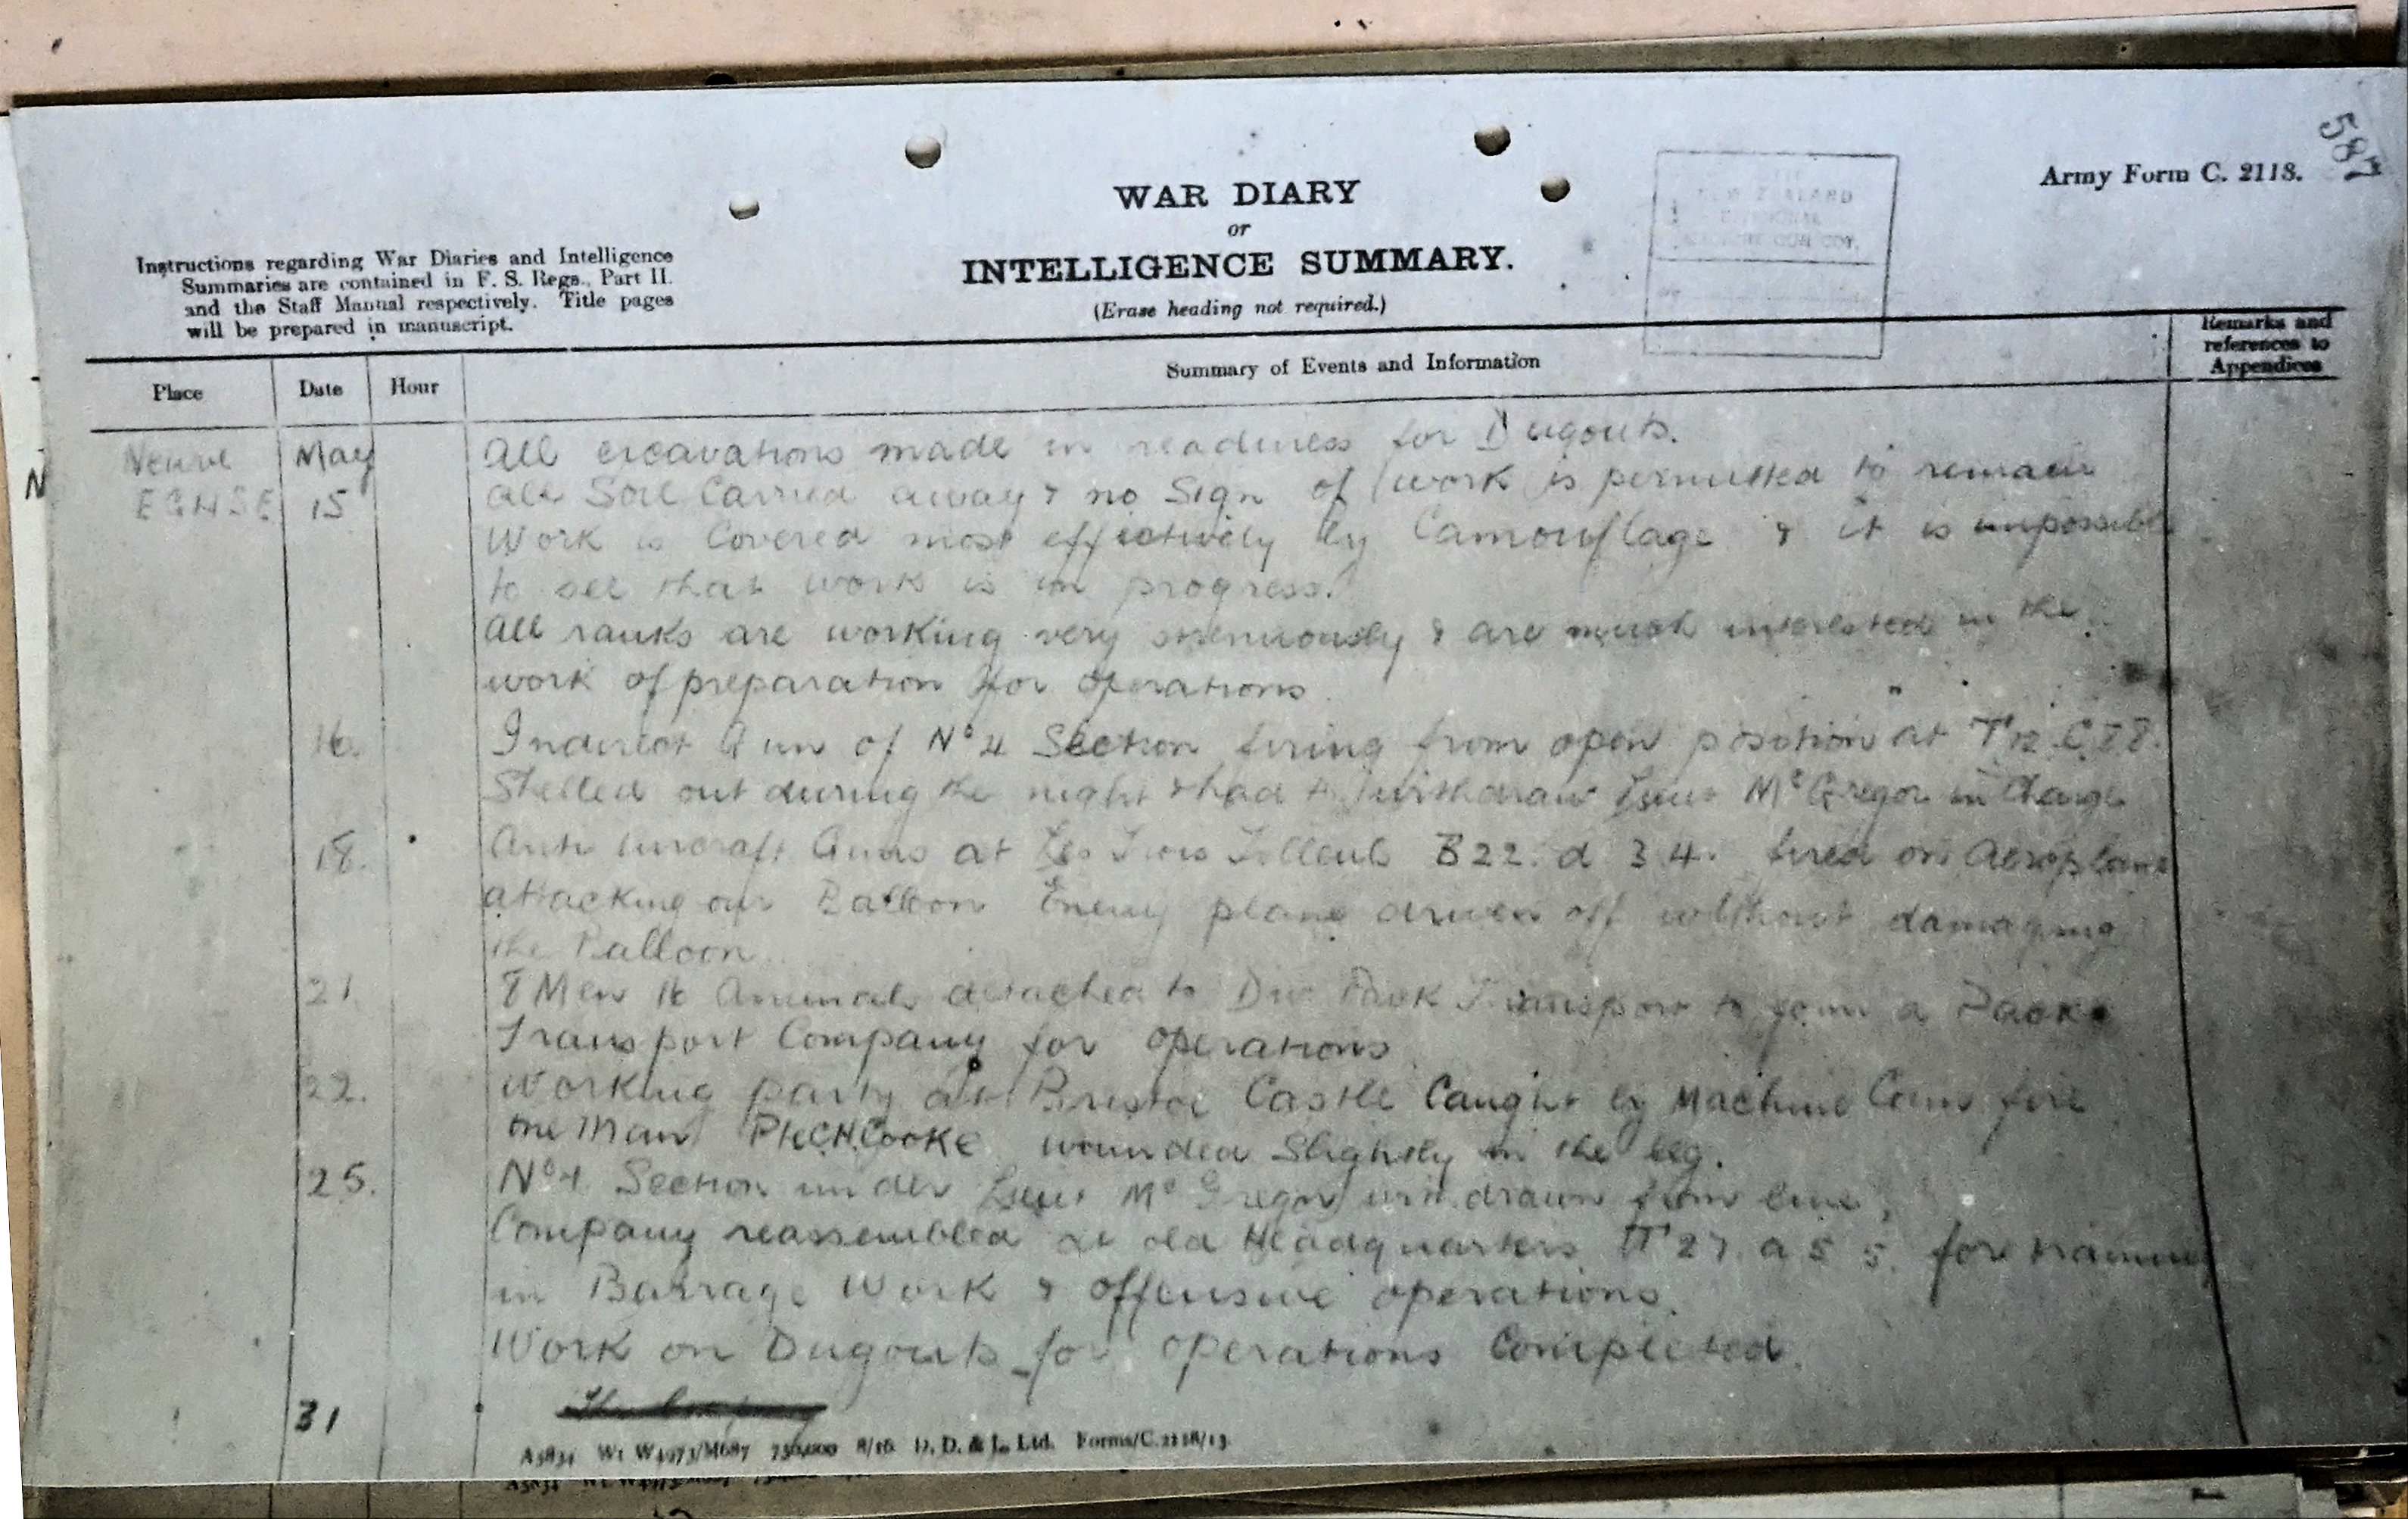 587
Army Form C. 2118.
WAR DIARY
or
INTELLIGENCE SUMMARY.
(Erase heading not required.)
NEW ZEALAND
DIVISIONAL
MACHINE GUN COY.
Instructions regarding War Diaries and Intelligence
Summaries are contained in F. S. Regs., Part II.
and the Staff Manual respectively. Title pages
will be prepared in manuscript.
Place Date Hour Summary of Events and Information Remarks and references to Appendices
Neuve May All excavations made in readiness for Dugouts.
EGHSE 15 All Soil Carried away & no Sign of work is permitted to remain
Work is Covered most effectively by Camouflage & it is impossible
to see that work is in progress.
All ranks are working very strenuously & are much interested in the
work of preparation for operations.
16. Indirect Gun of No 4 Section firing from open position at T12.C
Shelled out during the night & had to withdraw Lieut McGregor in Charge
18. Anti Aircraft Guns at Les Trois Tilleuls B22. d 3 4. fired on Aeroplane
attacking our Balloon Enemy plane driven off without damaging
the Balloon.
21. 8 Men 16 Animals attached to Div Pack Transport to form a Pack
Transport Company for operations
22. Working party at Bristol Castle Caught by Machine Gun fire
one Man Pte C.H. COOKE wounded Slightly in the leg.
25. No 4. Section under Lieut McGregor withdrawn from line.
Company reassembled at old Headquarters T 27. a 5 5. for training
in Barrage Work & offensive operations.
Work on Dugouts for operations Completed.
31 The Company
A5834 Wt W4973/M687 750,000 8/16 D. D. & L. Ltd. Forms/C.2118/13.